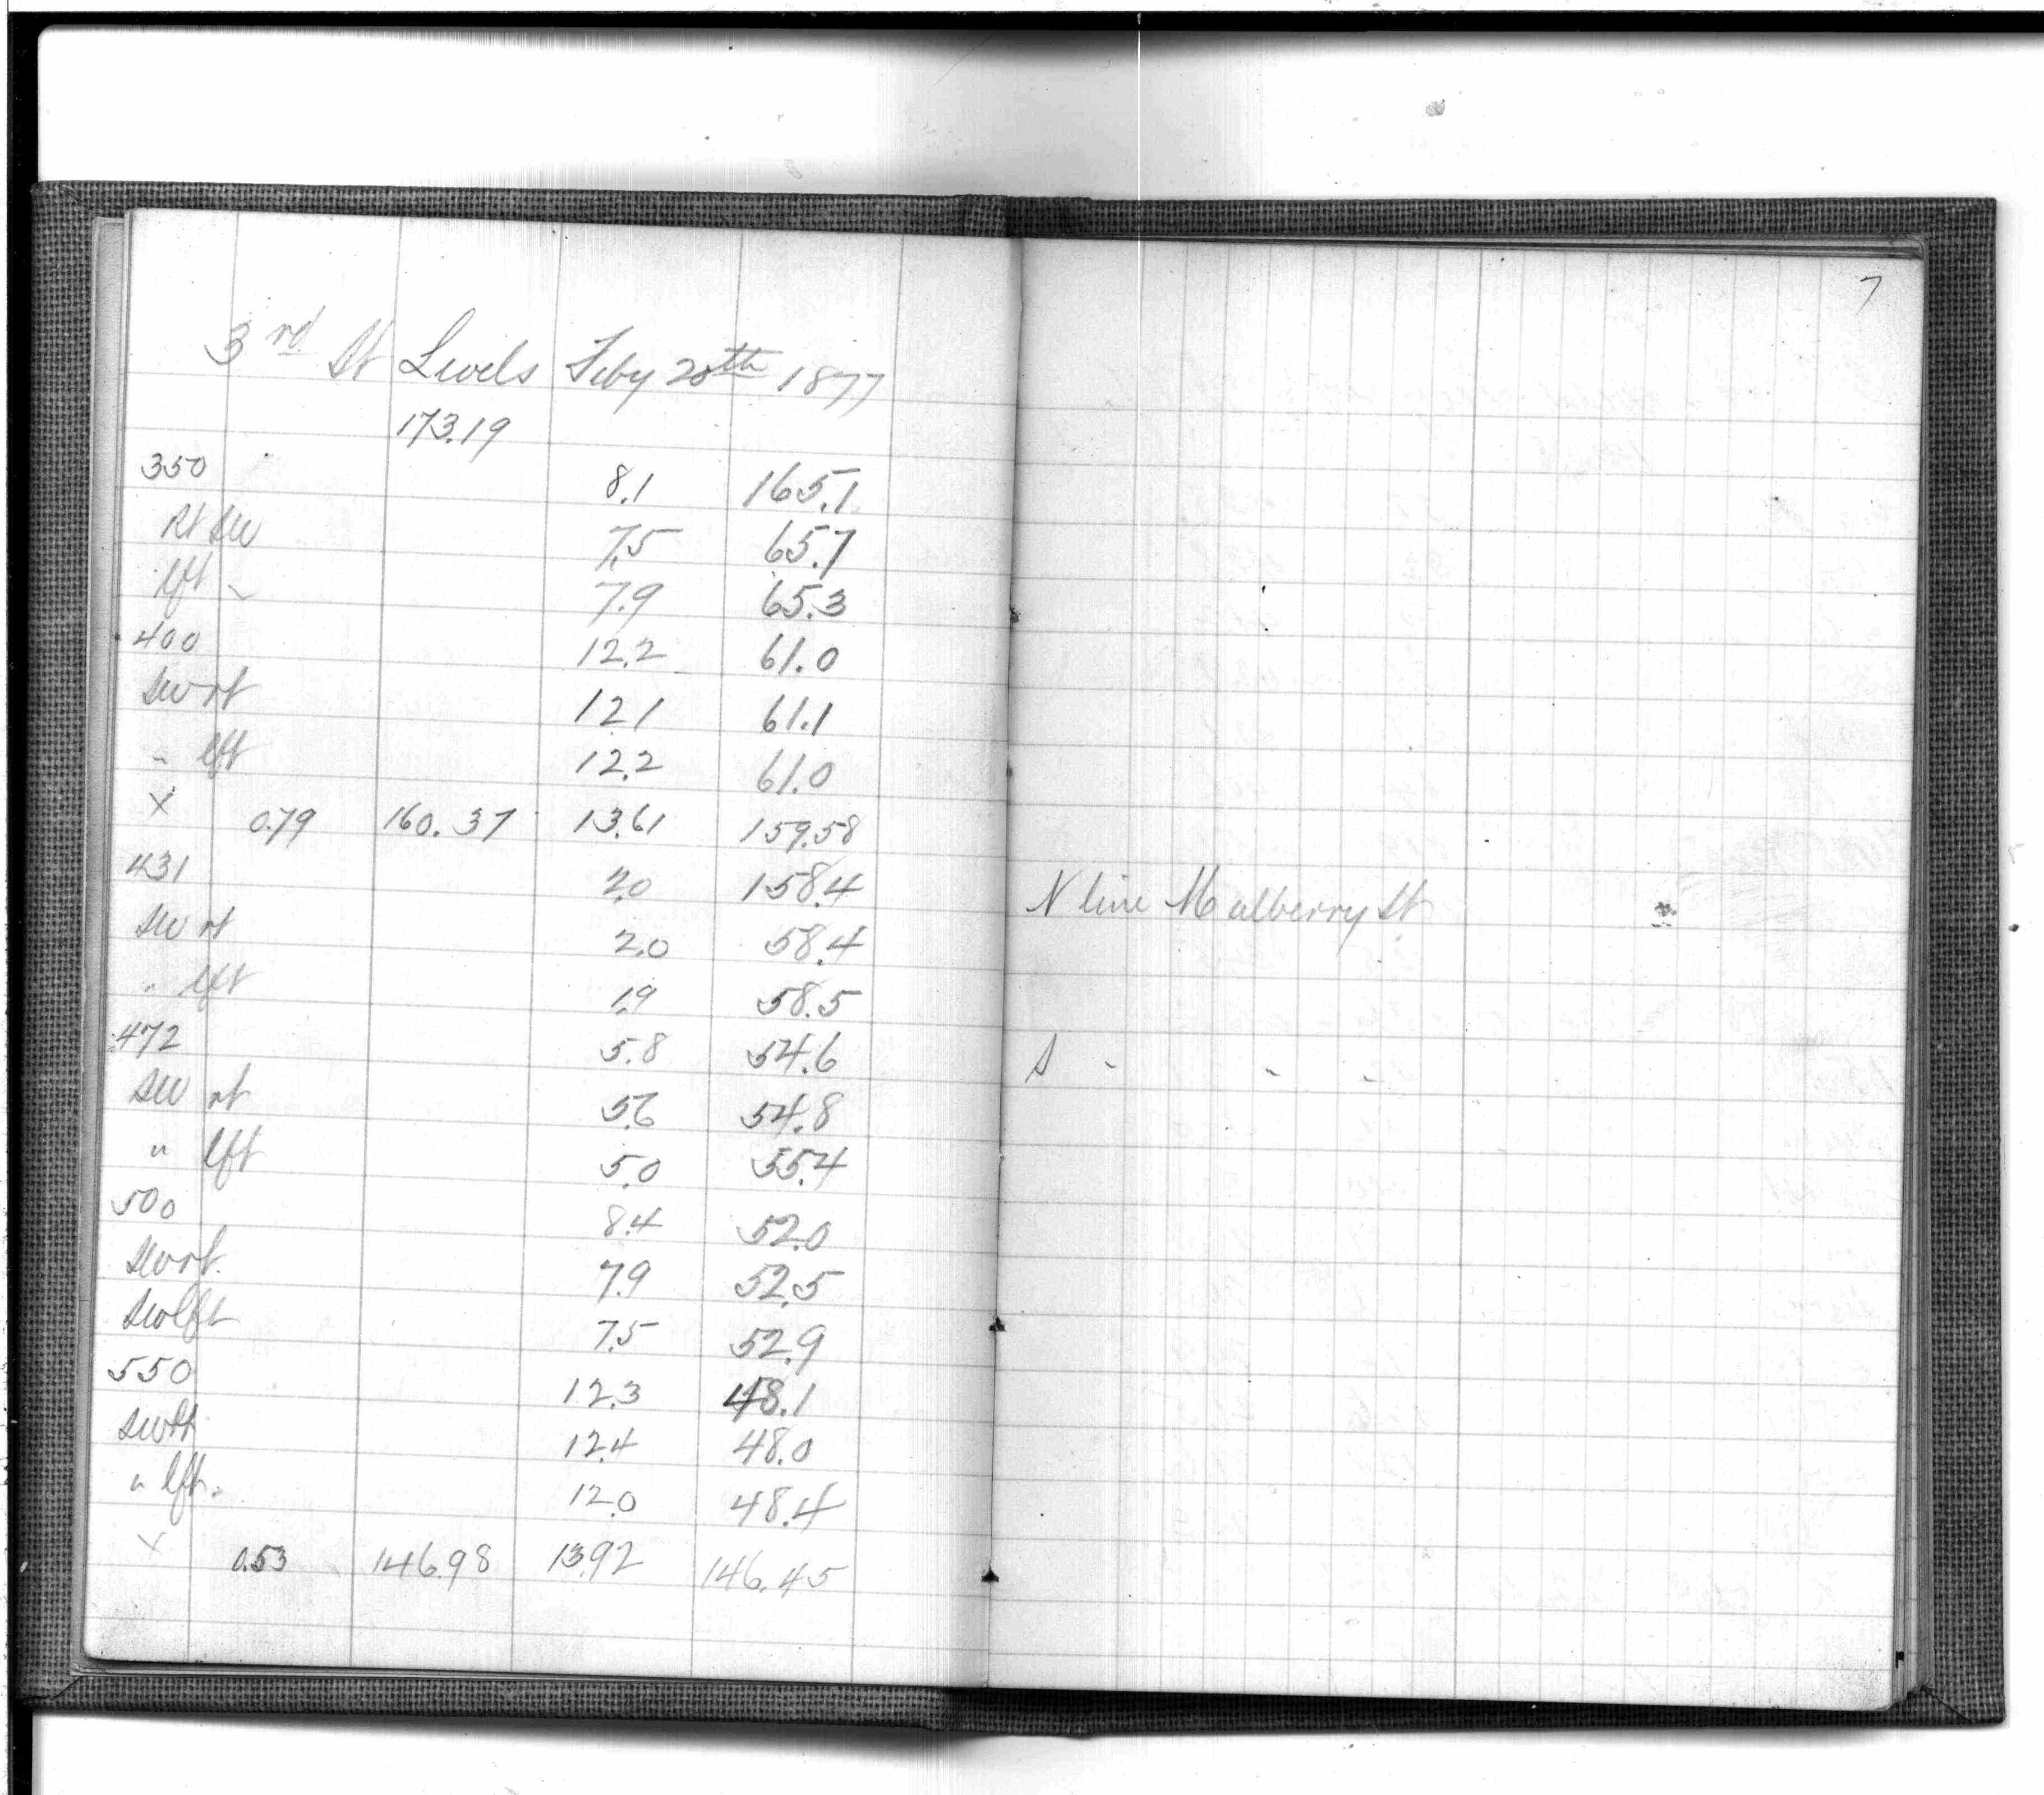 7
3rd St Levels Feby 20th 1877
173.19
350 8.1 165.1
Rt SW 7.5 65.7
lft " 7.9 65.3
400 12.2 61.0
SW rt 12.1 61.1
" lft 12.2 61.0
X 0.79 160.37 13.61 159.58
431 2.0 158.4 N line Mulberry St
SW rt 2.0 58.4
" lft 1.9 58.5
472 5.8 54.6 S " " "
SW rt 5.6 54.8
" lft 5.0 55.4
500 8.4 52.0
SW rt. 7.9 52.5
SW lft 7.5 52.9
550 12.3 48.1
SW rt 12.4 48.0
" lft. 12.0 48.4
X 0.53 146.98 13.92 146.45